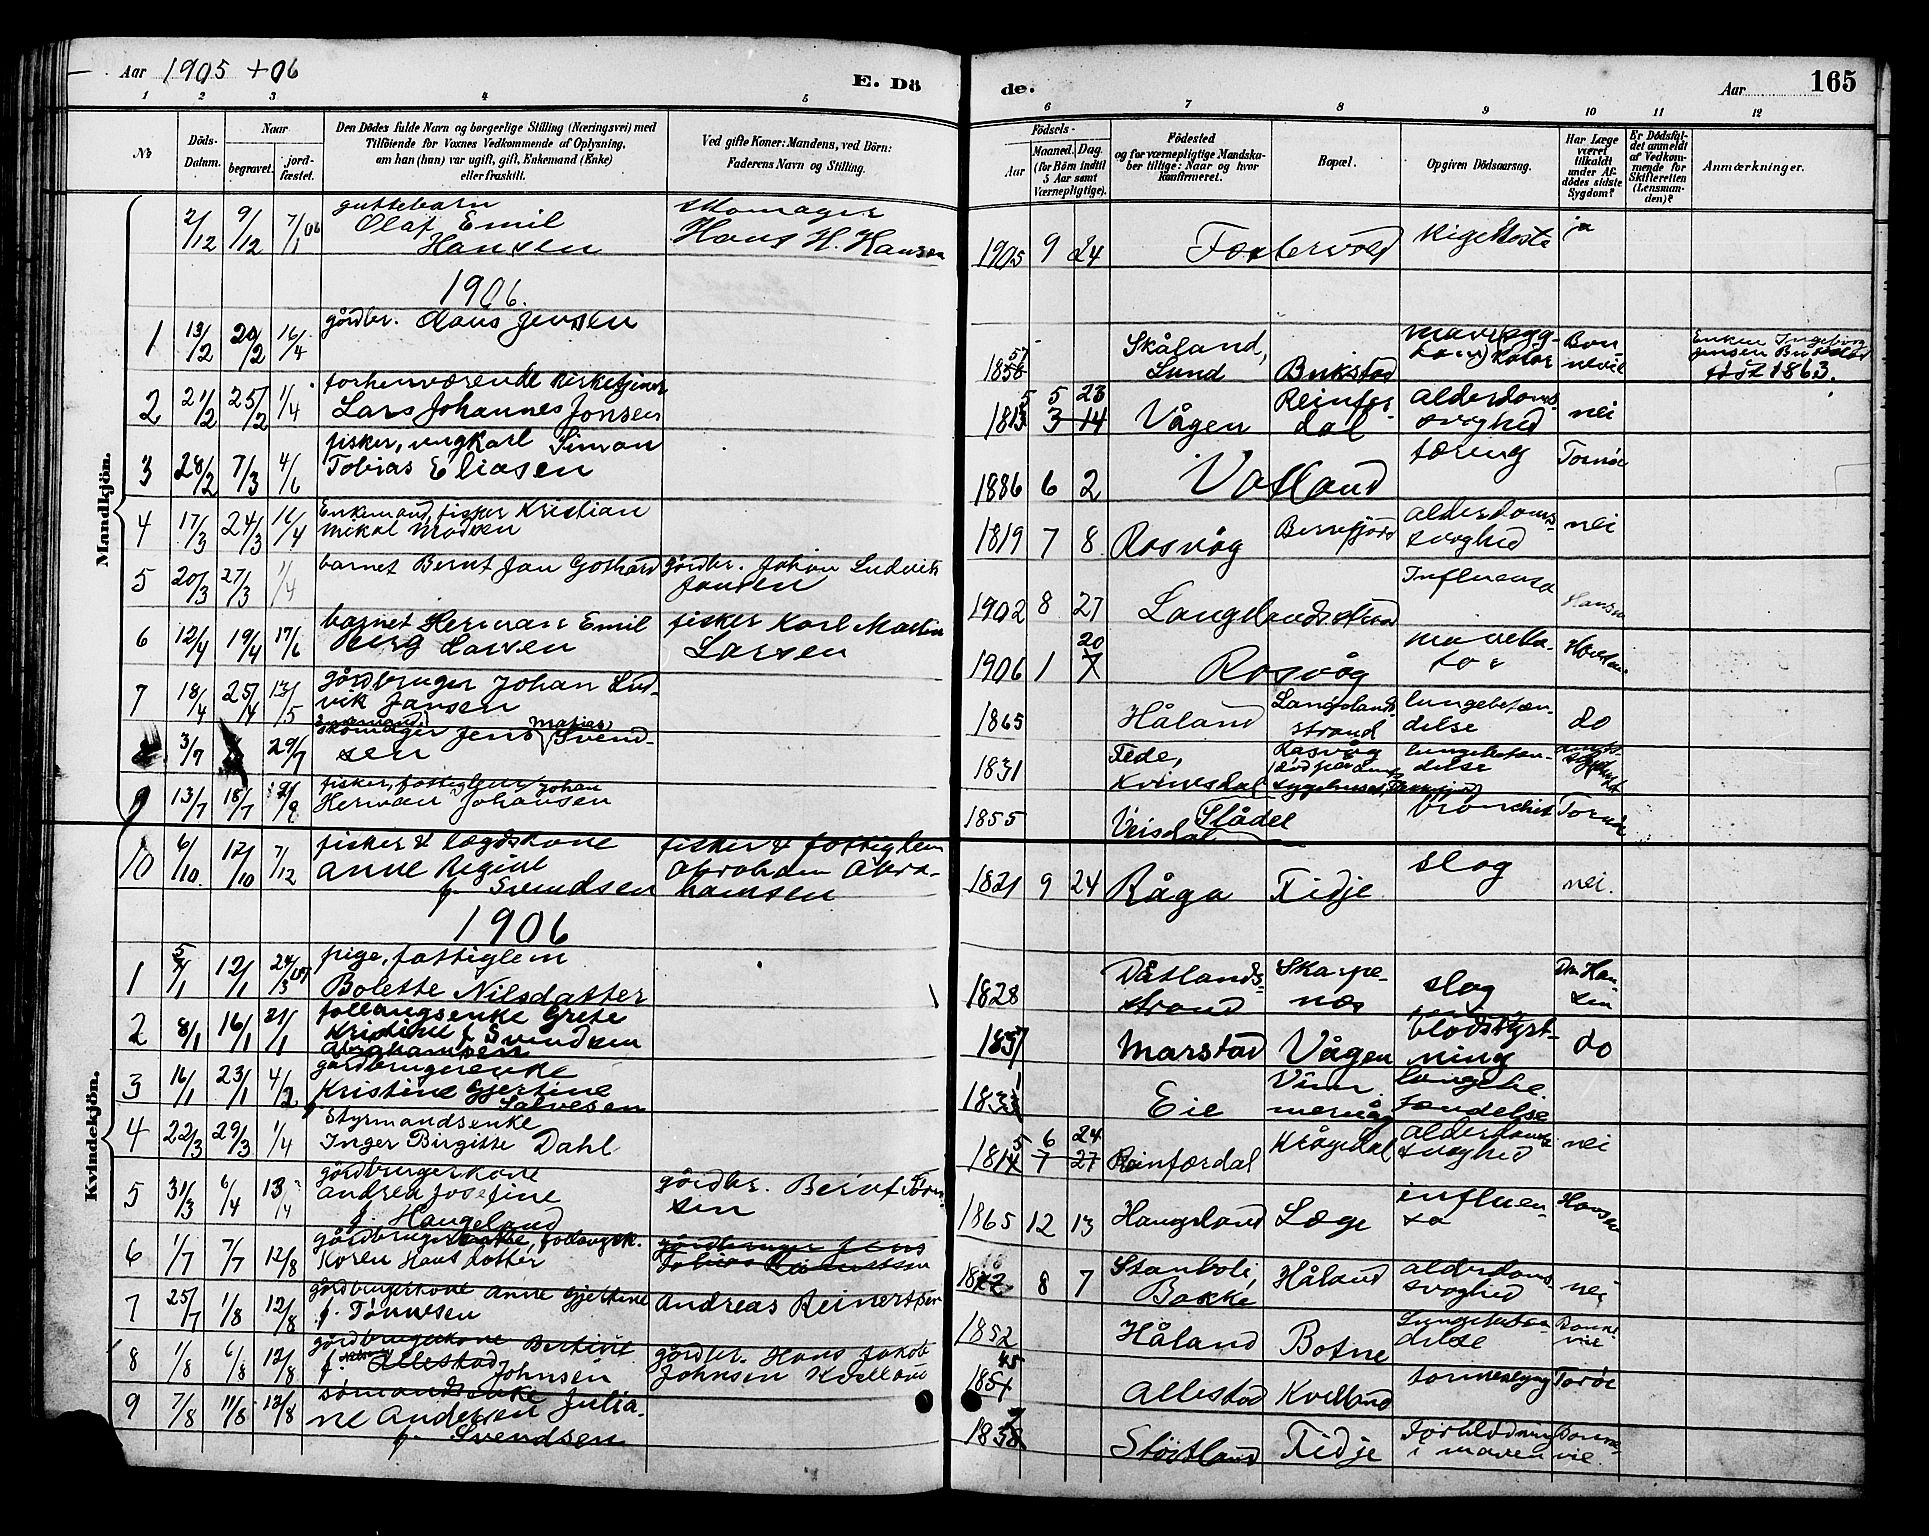 Aar 1905 + 06
E. Dö
de.
Aar
165
1 2 3 4 5 6 7 8 9 10 11 12
No
Döds-Datum.
Naar
begravet.
jord-fæstet.
Den Dödes fulde Navn og borgerlige Stilling (Næringsvei) med
Tilföiende for Voxnes Vedkommende af Oplysning,
om han (hun) var ugift, gift, Enkemand (Enke)
eller fraskilt.
Ved gifte Koner: Mandens, ved Börn:
Faderens Navn og Stilling.
Födsels-
Aar
Maaned. Dag.
(for Börn indtil
5 Aar samt
Værnepligtige).
Födested
og for værnepligtige Mandska-
ber tillige: Naar og hvor
konfirmeret.
Bopæl.
Opgiven Dödsaarsag.
Har Læge
været
tilkaldt
under Af-
dödes sidste
Sygdom?
Er Dödsfal-
det anmeldt
af Vedkom-
mende for
Skifteretten
(Lensman-
den)?
Anmærkninger.
Mandkjön.
2/12 9/12 7/1 06 guttebarn Olaf Emil Hansen skomager Hans H. Hansen 1905 9 24 ja
1906.
1 13/2 20/2 16/4 gårdbr. Claus Jensen 1858 57 Skåland, Lund Birkstad Enken Ingeborg Jensen født 1863.
2 21/2 25/2 1/4 forhenværende kirketjener Lars Johannes Jonsen 1813 5 3 14 5 23 Vågen Reinfordal alderdomssvaghed nei
3 28/2 7/3 4/6 fisker, ungkarl Simon Tobias Eliasen 1886 6 2 Vatland tæring Tornøe
4 17/3 24/3 16/4 Enkemand, fisker Kristian Mikal Madsen 1819 7 8 Rosvåg Bernefjord alderdomssvaghed nei
5 20/3 27/3 1/4 barnet Bernt Jan Gothard gårdbr. Johan Ludvik Jansen 1902 8 27 Langelandsstrand Influensa Hansen
6 12/4 19/4 17/6 barnet Herman Emil Berg Larsen fisker Karl Martin Larsen 1906 1 7 20 Rosvåg
7 18/4 25/4 13/5 gårdbruger Johan Ludvik Jansen 1865 Håland Langelandsstrand lungebetændelse do
8 3/7 29/7 enkemand, skomager Jens Matias Svendsen 1831 Fede, Kvinesdal Rasvåg lungebetændelse
9 13/7 18/7 21/9 fisker, fattiglem Johan Herman Johansen 1855 Veisdal Flådel bronchit Tornøe
10 6/10 12/10 7/12 fisker & lægdskone Anne Regine f. Svendsen fisker & fattiglem Abraham Abrahamsen 1821 9 24 Råga Kidje slag nei.
1906
Kvindekjön.
1 5/1 12/1 24/3 pige, fattiglem Bolette Nilsdatter 1828 Dåtlandsstrand Skarpenæs slag Dr. Hansen
2 8/1 16/1 21/1 follaugsenke Grete Kristine f. Svendsen Abrahamsen 1837 Marstad Vågen blodstyrtning do
3 16/1 23/1 4/2 gårdbrugerenke Kristine Gjertine f. Salvesen 1833 Eie lungebetændelse
4 22/3 29/3 1/4 Styrmandsenke Inger Birgitte Dahl 1814 5 7 27 6 24 Reinfordal Krågedal alderdomssvaghed nei
5 31/3 6/4 13/4 gårdbrugerkone Andrea Josefine f. Haugeland gårdbr. Bernt Tønnesen 1865 12 13 Haugeland Læge influensa Hansen
6 1/7 7/7 12/8 gårdbrugerenke, follaugsk. Karen Hansdatter gårdbruger Jens Tobias 18 8 7 Stanboli, Bakke Håland alderdomssvaghed nei
7 25/7 1/8 12/8 gårdbrugerkone Anne Gjertine f. Tønnesen Andreas Reinertsen 1852 Håland Botne Lungebetændelse Bonnevie
8 1/8 6/8 12/8 gårdbrugerkone Bertine f. Allestad Johnsen gårdbr. Hans Jakob Johnsen Kvelland 1851 45 Allestad Kvelland tarmeslyng Tornøe
9 7/8 11/8 12/8 sømandsenke Juliane Andersen f. Svendsen 1838 7 Støtland Kidje forblødning i maven Bonnevie.